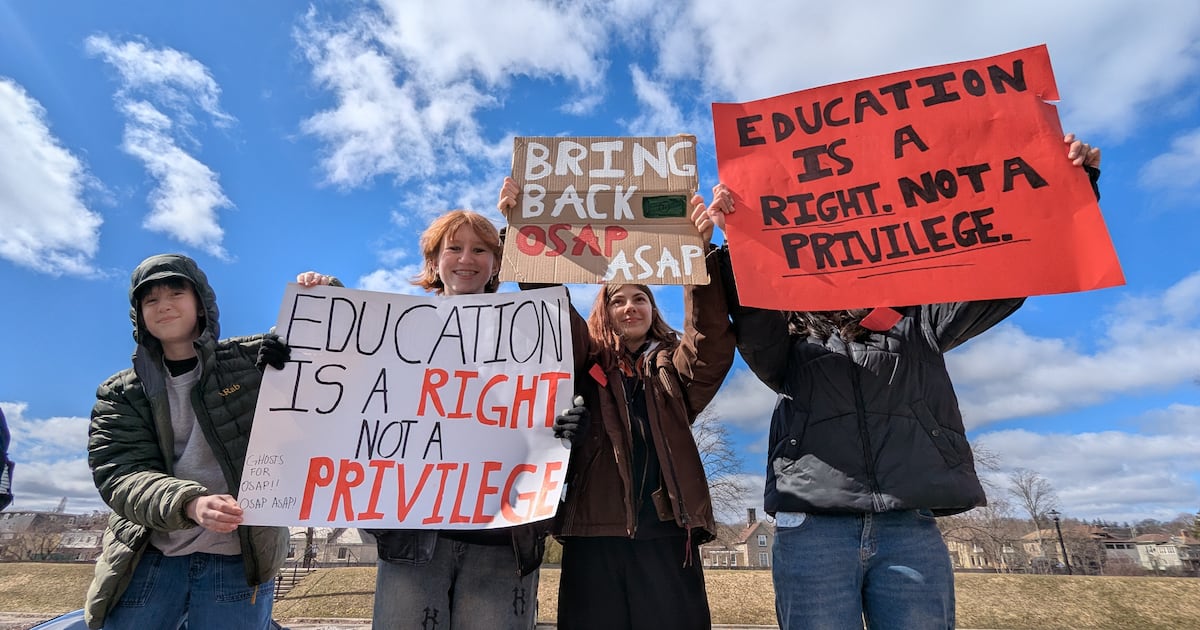 EDUCATION
IS A RIGHT
NOT A
PRIVILEGE
GHOSTS
FOR
OSAP!!
OSAP ASAP!
BRING
BACK
OSAP
ASAP
EDUCATION
IS A
RIGHT. NOT A
PRIVILEGE.
Rab